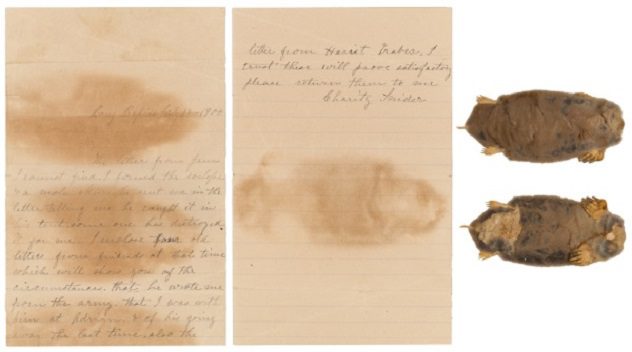 letter from
I cannot find. I found the envelope
a mole skin he sent me in the
letter telling me he caught it in
his tent some one has destroyed
it for me. I inclose four old
letters from friends at that time
which will show you of the
circumstances. that he wrote me
from the army. that I was with
him at Adrian, & of his going
away the last time, also the
letter from I
trust these will prove satisfactory
please return them to me
Charity Snider